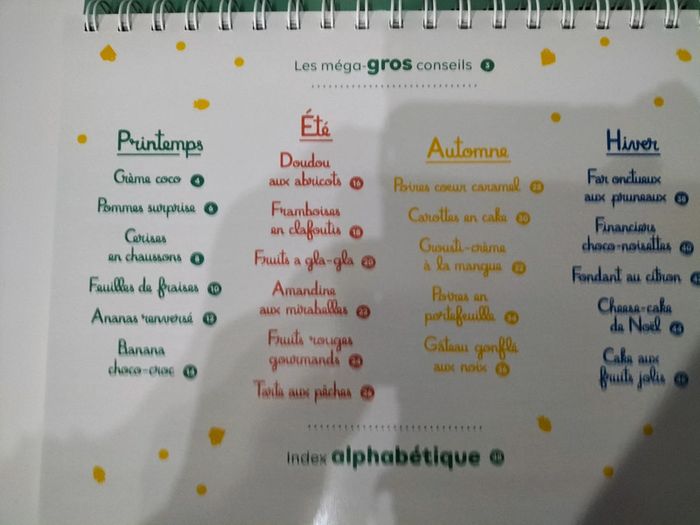 Les méga-gros conseils 3
Printemps
Crème coco 4
Pommes surprise 6
Cerises
en chaussons 8
Feuilles de fraises 10
Ananas renversé 12
Banana
choco-croc 14
Été
Doudou
aux abricots 16
Framboises
en clafoutis 18
Fruits a gla-gla 20
Amandine
aux mirabelles 22
Fruits rouges
gourmands 24
Tarte aux pêches 26
Automne
Poires coeur caramel 28
Carottes en cake 30
Crousti-crème
à la mangue 32
Poires en
portefeuille 34
Gâteau gonflé
aux noix 36
Hiver
Far onctueux
aux pruneaux 38
Financiers
choco-noisettes 40
Fondant au citron
Cheese-cake
de Noël 44
Cake aux
fruits jolis 46
Index alphabétique 48